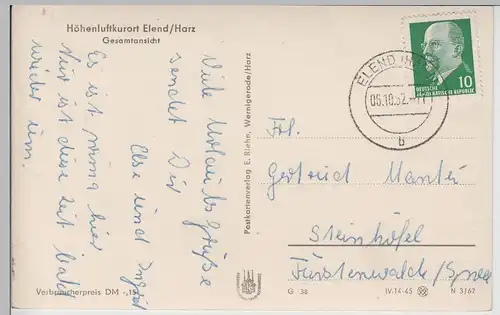 Höhenluftkurort Elend/Harz
Gesamtansicht
Viele Urlaubsgrüße
sendet Dir
Else und Ingrid
Es ist wenig hier
Nur ist diese Zeit bald
wieder um.
Verbraucherpreis DM -,15
Postkartenverlag E. Riehn, Wernigerode/Harz
ELEND (HARZ)
b
DEUTSCHE
DEMOKRATISCHE REPUBLIK
10
Frl.
Gertrud
Steinhöfel
Fürstenwalde/Spree
G 38
IV-14-45
N 3/62